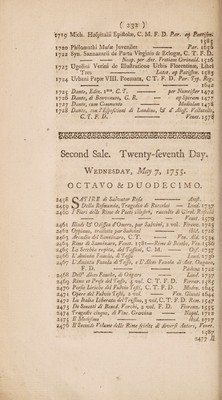 ( 232 )
1719 Mich. Hospitalii Epistolæ, C. M. F. D. Par. ap Patisson.
1585
1720 Philomathi Musæ Juveniles — Par. 1656
1722 Syn. Sannazarii de Partu Virginis & Eclogæ, C. T. F. D.
Neap. per Ant. Fretiam Corinald. 1526
1723 Ugolini Verini de Illustratione Urbis Florentiæ, Libri
Tres — Lutet. ap Patisson. 1583
1724 Urbani Pape VIII. Poemata, C.T. F. D. Par. Typ. Reg.
1642
1725 Dante, C.T. per 1484
1726 Dante, di Bonaccorso, C. R. — ap Spiram 1477
1727 Dante, cum Commento — Mediolan 1478
1728 Dante, con l'Espositioni di Landino, & d'Aless. Vellutello,
C. T. F. D. — Venet. 1578
Second Sale. Twenty-seventh Day.
WEDNESDAY, May 7, 1755.
OCTAVO & DUODECIMO.
2458 SATIRE di Salvator Rosa — Amst.
2459 Della Rosmunda, Tragedia di Rucellai — Lond. 1737
2460 I Fiori delle Rime de Poeti illustri, raccolti di Girol. Ruscelli
Venet. 1579
2461 Iliade & Odissea d'Omero, par Salvini, 2 vol. Firenz. 1723
2462 Oppiano, tradotto par Salvini — ibid. 1728
2463 Arcadia del Sannazaro, C. T. — Ald. 1534
2464 Rime di Sannazaro, Venet. 1581—Rime di Bembo, Ven. 1586
2465 La Secchia rapita, del Tassoni, C. M. — Oxf. 1737
2466 L'Aminta Favola, di Tasso — Lond. 1736
2467 L'Aminta Favola di Tasso, & l'Alceo Favola di Ant. Ongaro,
F. D. — Padova 1722
2468 Dell' Alceo Favola, di Ongaro — Lond. 1737
2469 Rime et Prose del Tasso, 4 vol. C. T. F. D. — Ferrar. 1583
2470 Poesie Liriche del Fulvio Testi, C. T. F. D. — Modin. 1645
2471 Opere del Fulvio Testi, 2 vol — Ven. Giunti 1644
2472 La Italia Liberata del Trissino, 3 vol, C.T. F. D. Rom. 1547
2473 De Sonetti di Bened. Varchi, 2 vol, F. D. Firenz. 1557
2474 Tragedie cinque, di Vinc. Gravina — Napol. 1712
2475 Il Medesimo — ibid. 1717
2476 Il Secondo Volume delle Rime scelte di diversi Autori, Venet.
1587
2477 Il